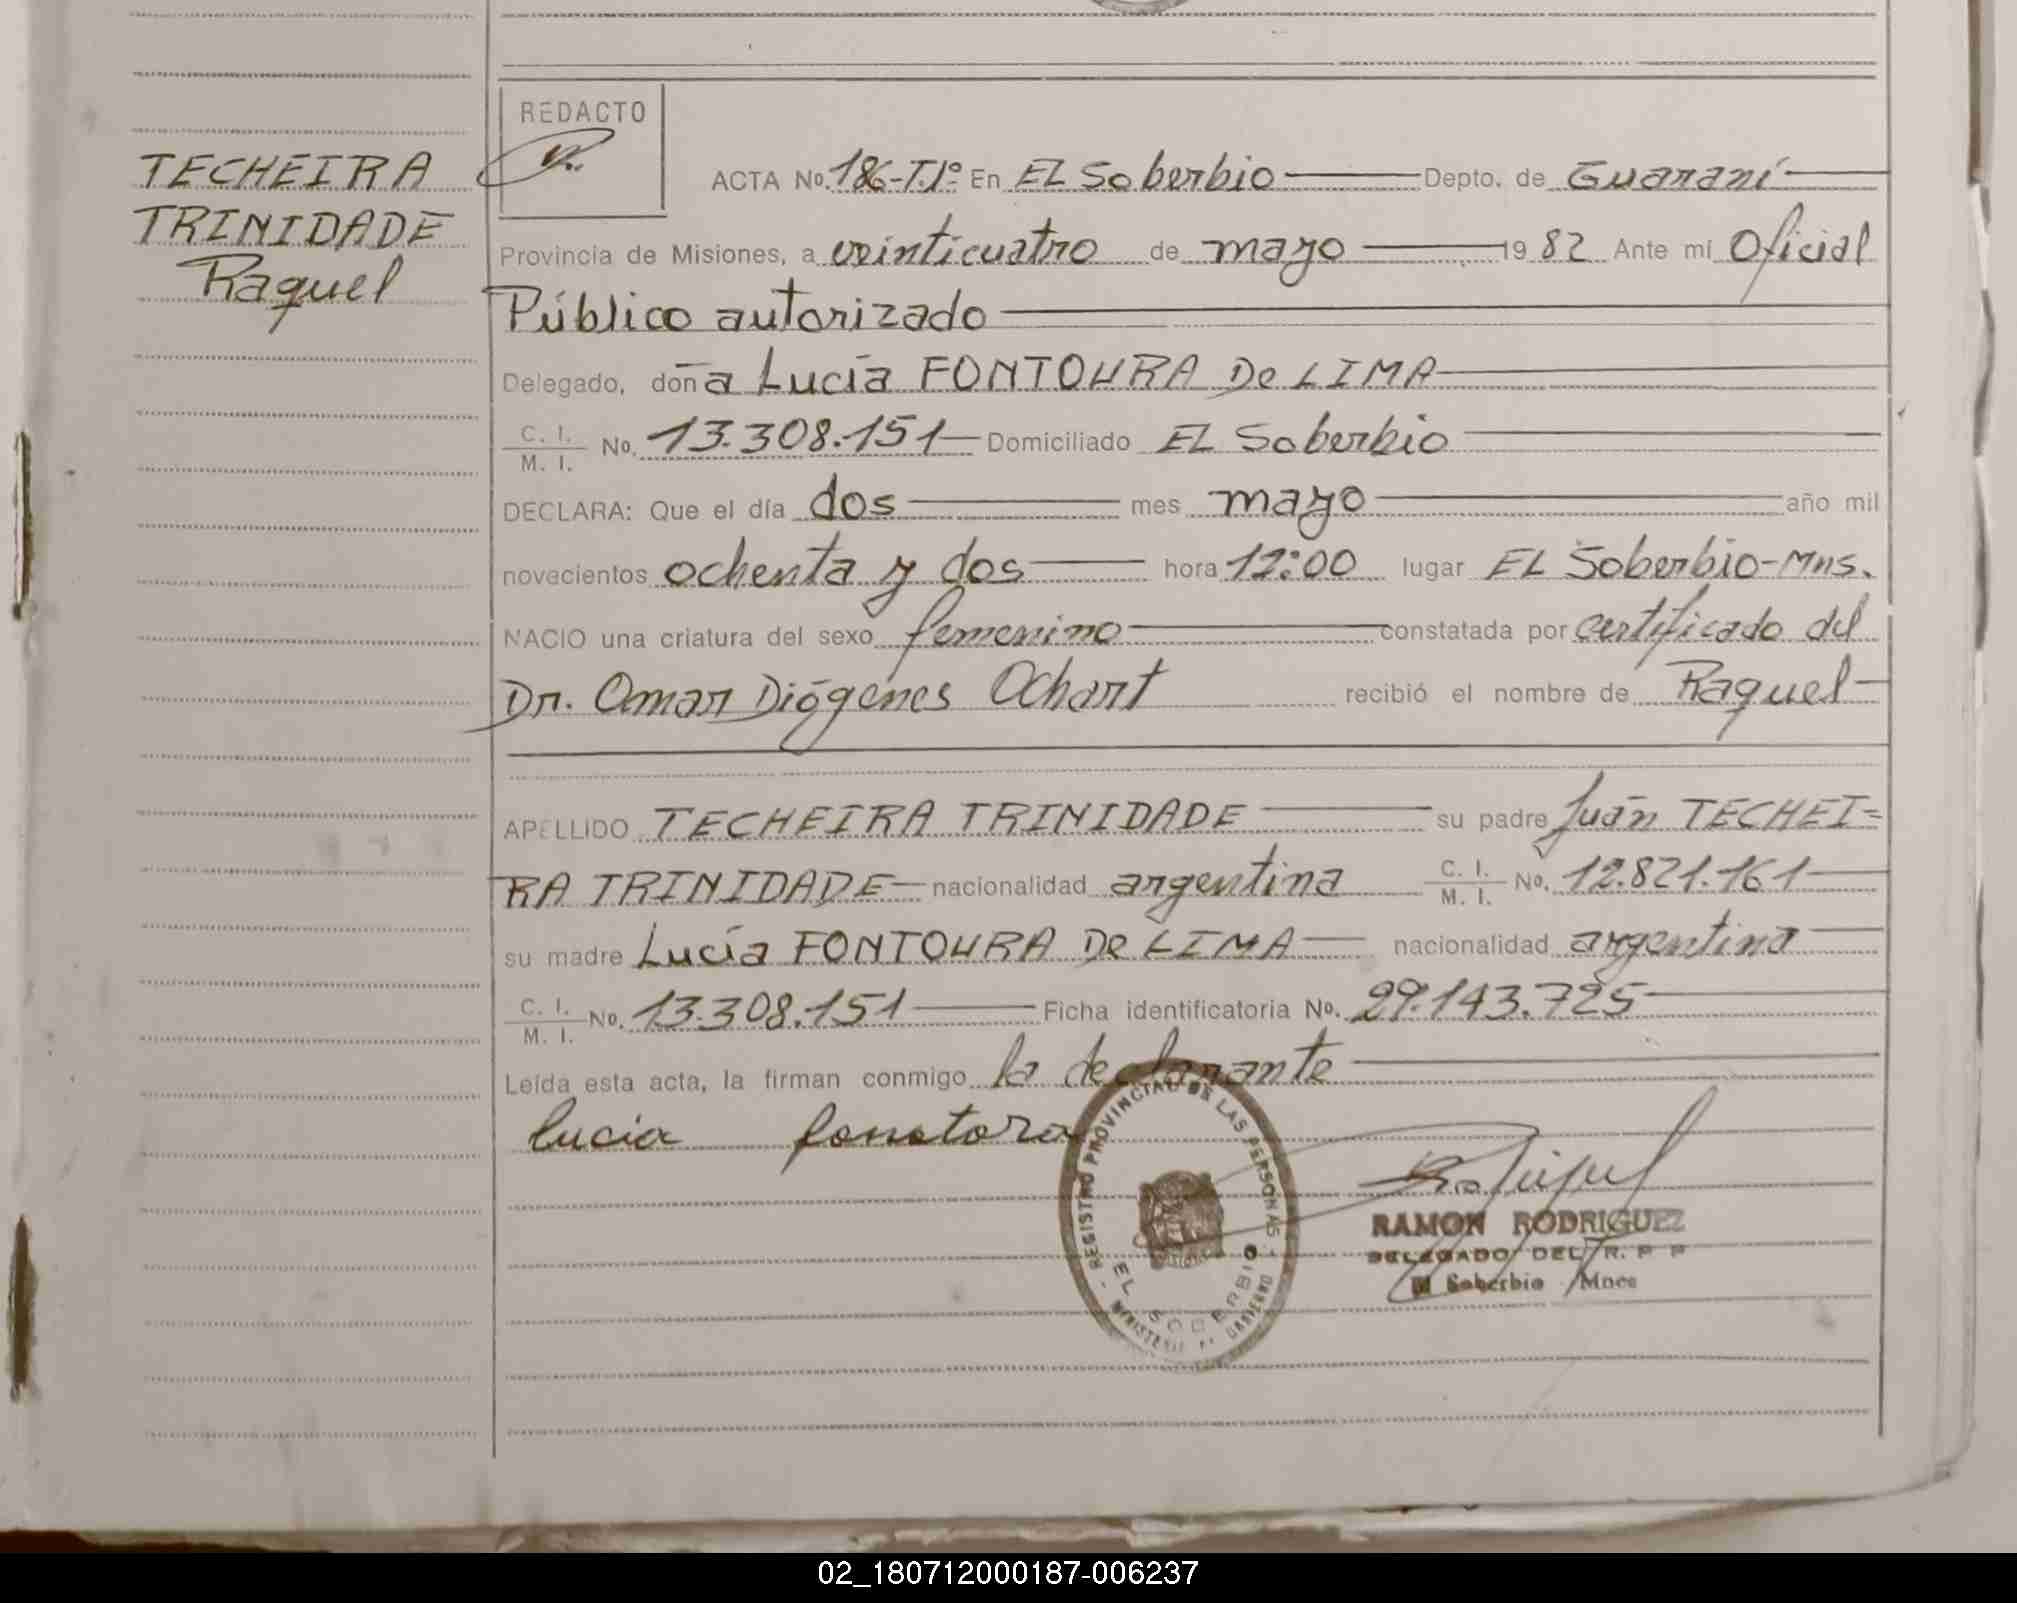 TECHEIRA
TRINIDADE
Raquel
REDACTO
ACTA No. 186-T.1º En EL Soberbio Depto. de Guaraní
Provincia de Misiones, a veinticuatro de mayo 1982 Ante mí Oficial
Público autorizado
Delegado, doña Lucía FONTOURA De LIMA
C. I.
M. I. No. 13.308.151 Domiciliado EL Soberbio
DECLARA: Que el día dos mes mayo año mil
novecientos ochenta y dos hora 12:00 lugar EL Soberbio-Mns.
NACIO una criatura del sexo femenino constatada por certificado del
Dr. Omar Diógenes Ochart recibió el nombre de Raquel
APELLIDO TECHEIRA TRINIDADE su padre Juán TECHEI=
RA TRINIDADE nacionalidad argentina C. I. M. I. No. 12.821.161
su madre Lucía FONTOURA De LIMA nacionalidad argentina
C. I.
M. I. No. 13.308.151 Ficha identificatoria No. 29.143.725
Leída esta acta, la firman conmigo la declarante
lucia fonotora
REGISTRO PROVINCIAL DE LAS PERSONAS
EL SOBERBIO
RAMON RODRIGUEZ
DELEGADO DEL R. P P
El Soberbio Mnes
02_180712000187-006237